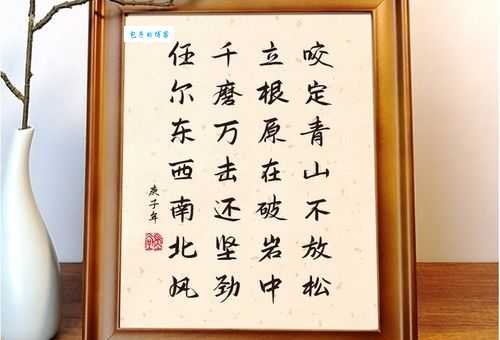 咬定青山不放松
立根原在破岩中
千磨万击还坚劲
任尔东西南北风
庚子年